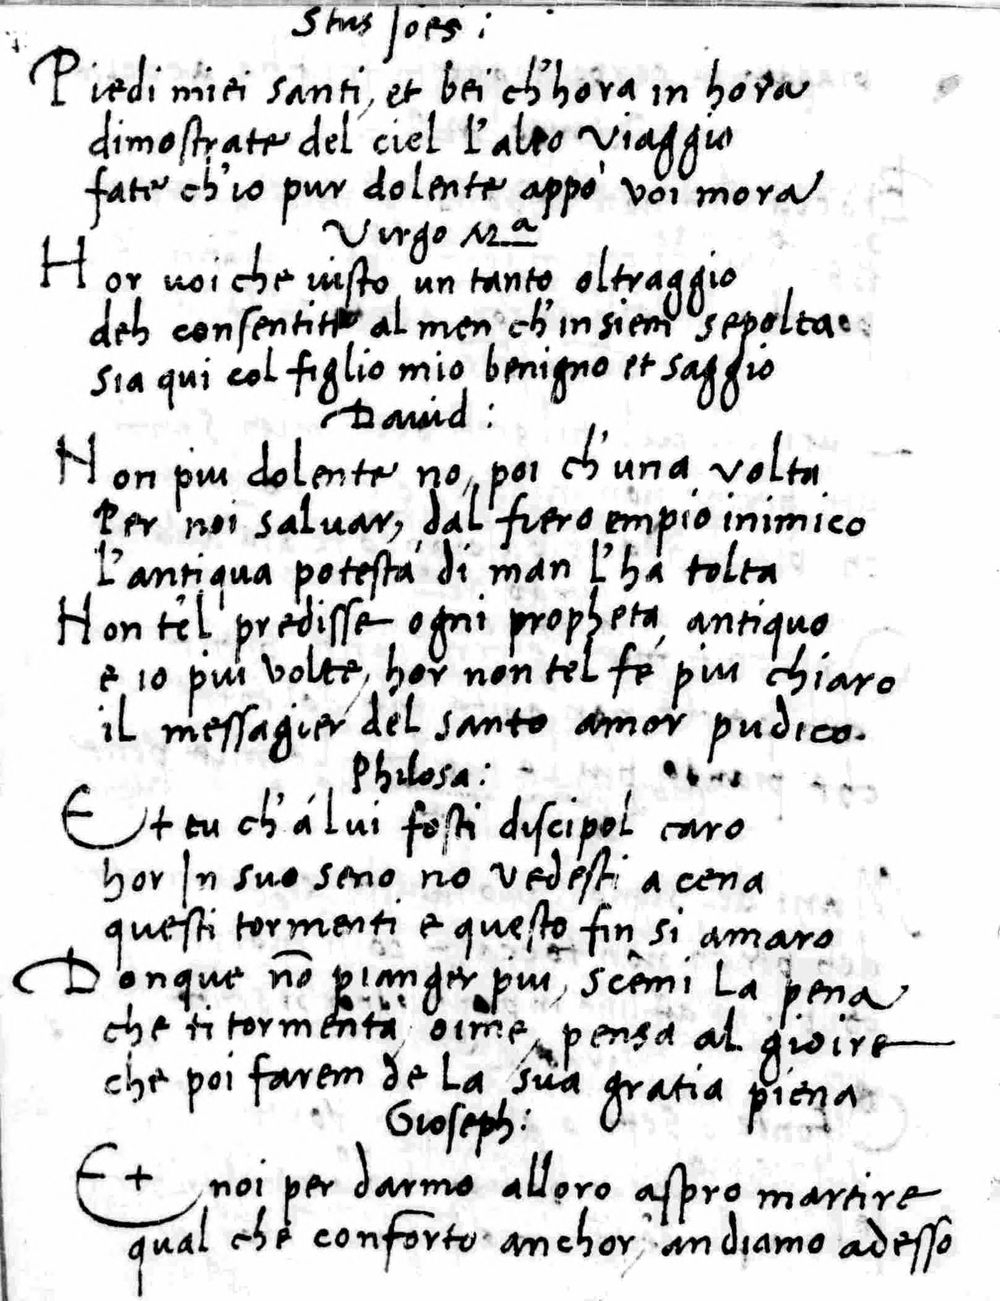 Stus Joēs :
Piedi miei santi, et bei ch'hora in hora
dimoſtrate del ciel l'alto viaggio
fate ch'io pur dolente appo voi mora
Virgo Mª
Hor voi che viſto un tanto oltraggio
deh conſentite al men ch'insiem sepolta
sia qui col figlio mio benigno et saggio
David :
Non piu dolente no, poi ch'una volta
Per noi saluar, dal fiero empio inimico
L'antiqua poteſtà di man l'ha tolta
Non tel prediſſe ogni propheta antiquo
e io piu volte, hor non tel fe piu chiaro
il meſſagier del santo amor pudico.
Philosa :
Et tu ch'à lui foſti diſcipol caro
hor In suo seno no vedeſti a cena
queſti tormenti e queſto fin si amaro
Donque nō pianger piu, scemi la pena
che ti tormenta, oime, pensa al gioire
che poi farem de la sua gratia piena
Gioſeph :
Et noi per darmo alloro aſpro martire
qual che conforto anchor, andiamo adeſſo